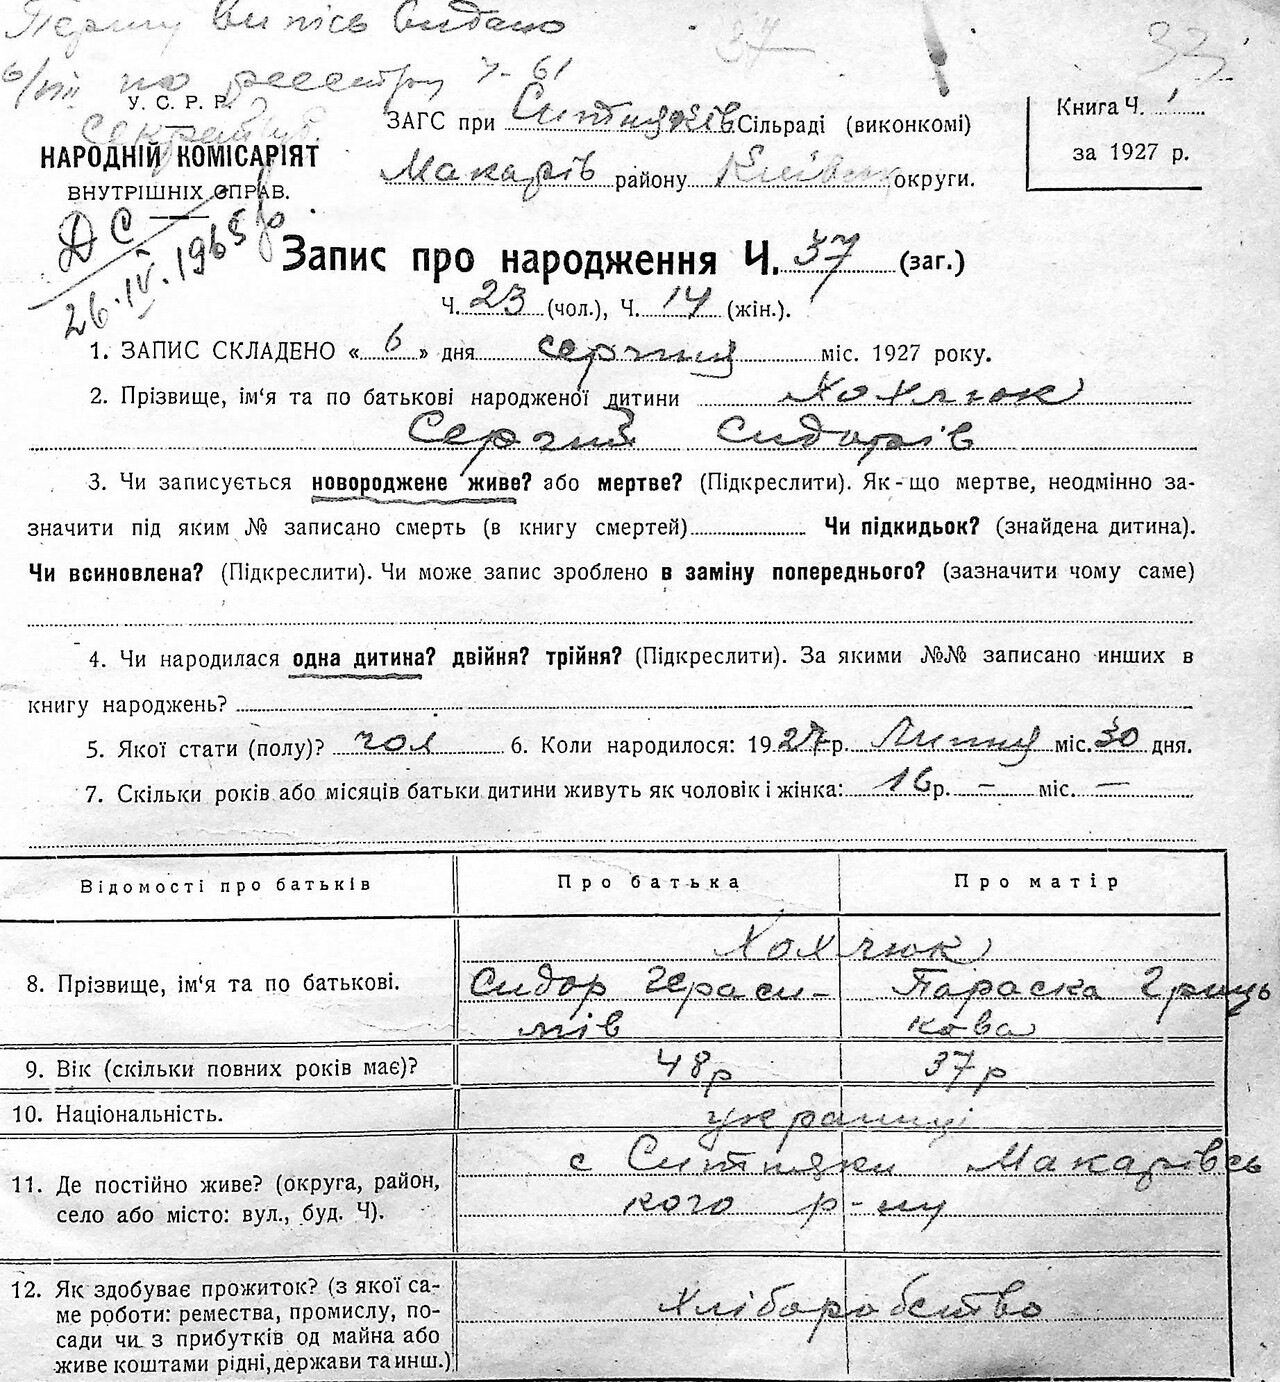 Першу випись видано 37 33
6/VIII по реєстру 7-61
У. С. Р. Р.
НАРОДНІЙ КОМІСАРІЯТ
ВНУТРІШНІХ СПРАВ.
ДС
26.IV.1965р
ЗАГС при Ситняків Сільраді (виконкомі)
Макарів району Київськ округи.
Книга Ч. 1
за 1927 р.
Запис про народження Ч. 37 (заг.)
Ч. 23 (чол.), Ч. 14 (жін.).
1. ЗАПИС СКЛАДЕНО « 6 » дня серпня міс. 1927 року.
2. Прізвище, ім‘я та по батькові народженої дитини Хохлюк
Сергій Сидорів
3. Чи записується новороджене живе? або мертве? (Підкреслити). Як-що мертве, неодмінно за-
значити під яким № записано смерть (в книгу смертей) Чи підкидьок? (знайдена дитина).
Чи всиновлена? (Підкреслити). Чи може запис зроблено в заміну попереднього? (зазначити чому саме)
4. Чи народилася одна дитина? двійня? трійня? (Підкреслити). За якими №№ записано инших в
книгу народжень?
5. Якої стати (полу)? чол 6. Коли народилося: 1927 р. Липня міс. 30 дня.
7. Скільки років або місяців батьки дитини живуть як чоловік і жінка: 16 р. — міс. —
Відомості про батьків Про батька Про матір
8. Прізвище, ім‘я та по батькові. Хохлюк
Сидор Гераси- Параска Гриць
мів кова
9. Вік (скільки повних років має)? 48р 37р
10. Національність. українці
11. Де постійно живе? (округа, район, с Ситняки Макарівсь
село або місто: вул., буд. Ч). кого р-ну
12. Як здобуває прожиток? (з якої са-
ме роботи: ремества, промислу, по- хліборобство
сади чи з прибутків од майна або
живе коштами рідні, держави та инш.)